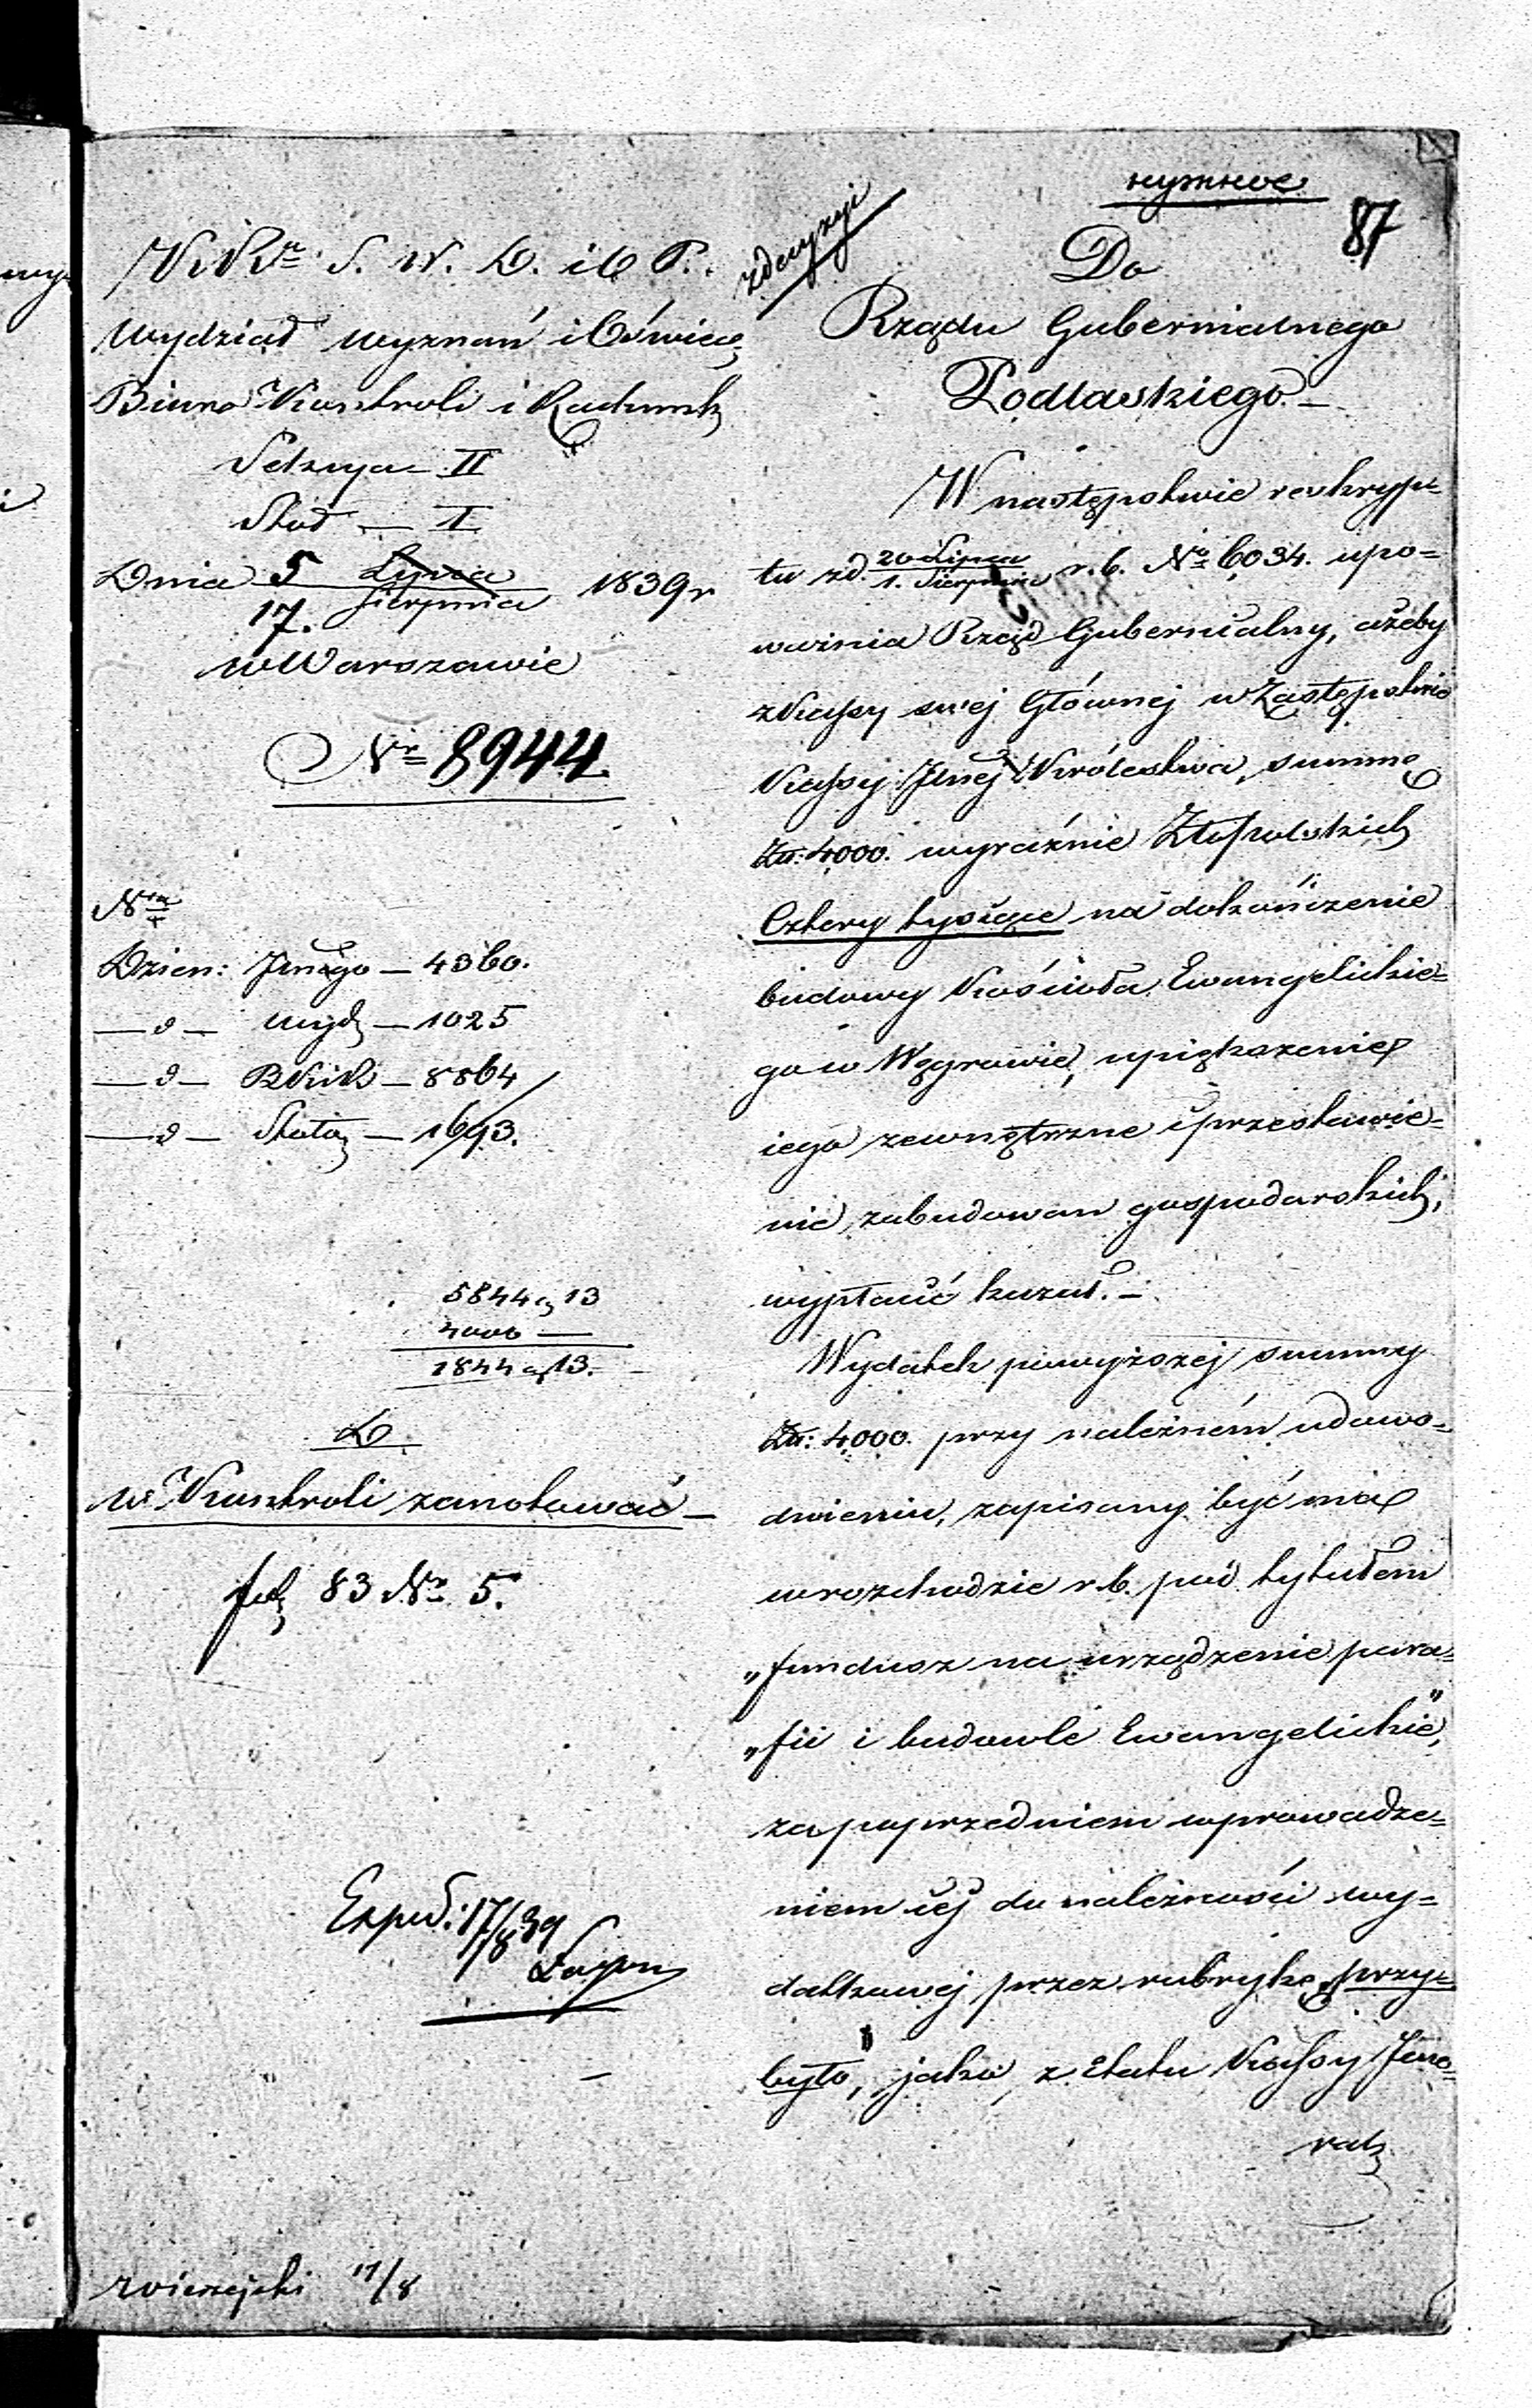 нужное
87
K. R. S. W. D. i O P.
Wydział Wyznań i Oświec
Biuro Kontroli i Rachunk
Sekcya II
Stoł — I
Dnia 5 Lipca 1839 r
17. Sierpnia
w Warszawie
Nr 8944
Nra
Dzien: Jnego — 4360.
— d — Wydz — 1025
— d — BKiR — 8864
— d — Stołu — 1693.
5844 g 13
4000 —
1844 g 13.
D.
w Kontroli zanotować —
fol 83 Nr 5.
Exped: 17/8 39
17/8
z decyzyi
Do
Rządu Gubernialnego
Podlaskiego. —
W następstwie reskryp-
tu z d. 20 Lipca r. b. No 6034. upo=
1. Sierpnia
ważnia Rząd Gubernialny, ażeby
z Kassy swej Głównej w Zastępstwie
Kassy Jlnej Królestwa, summę
Zł: 4000. wyraźnie Złotpolskich
Cztery tysiące na dokończenie
budowy Kościoła Ewangelickie=
go w Węgrowie, upiększenie
iego zewnętrzne i przestawie=
nie zabudowan gospodarskich,
wypłacić kazał. —
Wydatek powyższej summy
Zł: 4000. przy należném udowo=
dnieniu, zapisany być ma
w rozchodzie r. b. pod tytułem
„fundusz na urządzenie para=
„fii i budowle Ewangelickie",
za poprzedniem wprowadze=
niem iej do należności wy=
datkowej przez rubrykę „przy=
było", jako z Etatu Kassy Jene=
ralz